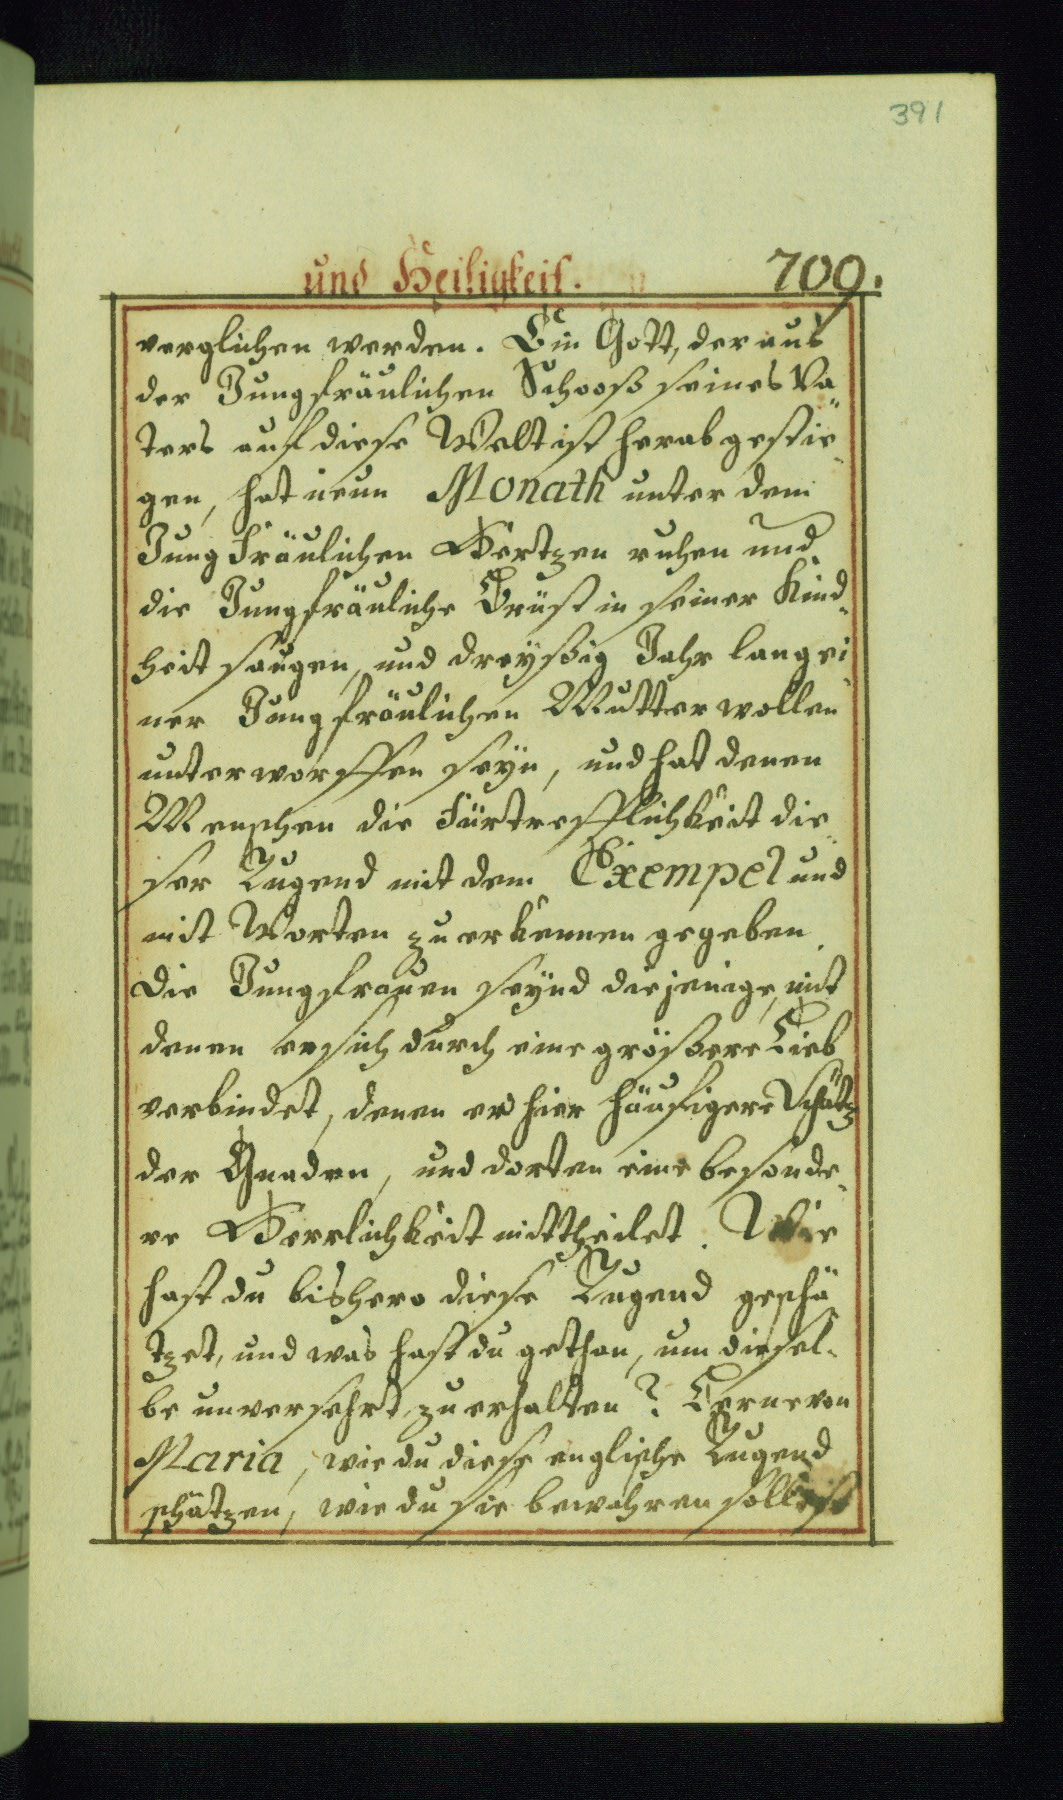 391
und Heiligkeit. 709.
verglichen werden. Ein Gott, der aus
der Jungfräulichen Schooß seines Va
ters auf diese Welt ist herab gestie
gen, hat neun Monath unter dem
Jung Fräulichen Hertzen ruhen und
die Jungfräuliche Brüst in seiner Kind
heit saugen, und dreyßig Jahr lang ei
ner Jungfräulichen Mutter wollen
unterworffen seyn, und hat denen
Menschen die Fürtrefflichkeit die
ser Tugend mit dem Exempel und
mit Worten zu erkennen gegeben.
Die Jungfrauen seynd diejenige, mit
denen er sich durch eine größere Lieb
verbindet, denen er hier häufigere Schätz
der Gnaden, und dorten eine besonde
re Herrlichkeit mittheilet. Wie
hast du bishero diese Tugend geschä
tzet, und was hast du gethan, um diesel-
be unversehrt zu erhalten? Lerne von
Maria, wie du diese englische Tugend
schätzen, wie du sie bewahren sollest